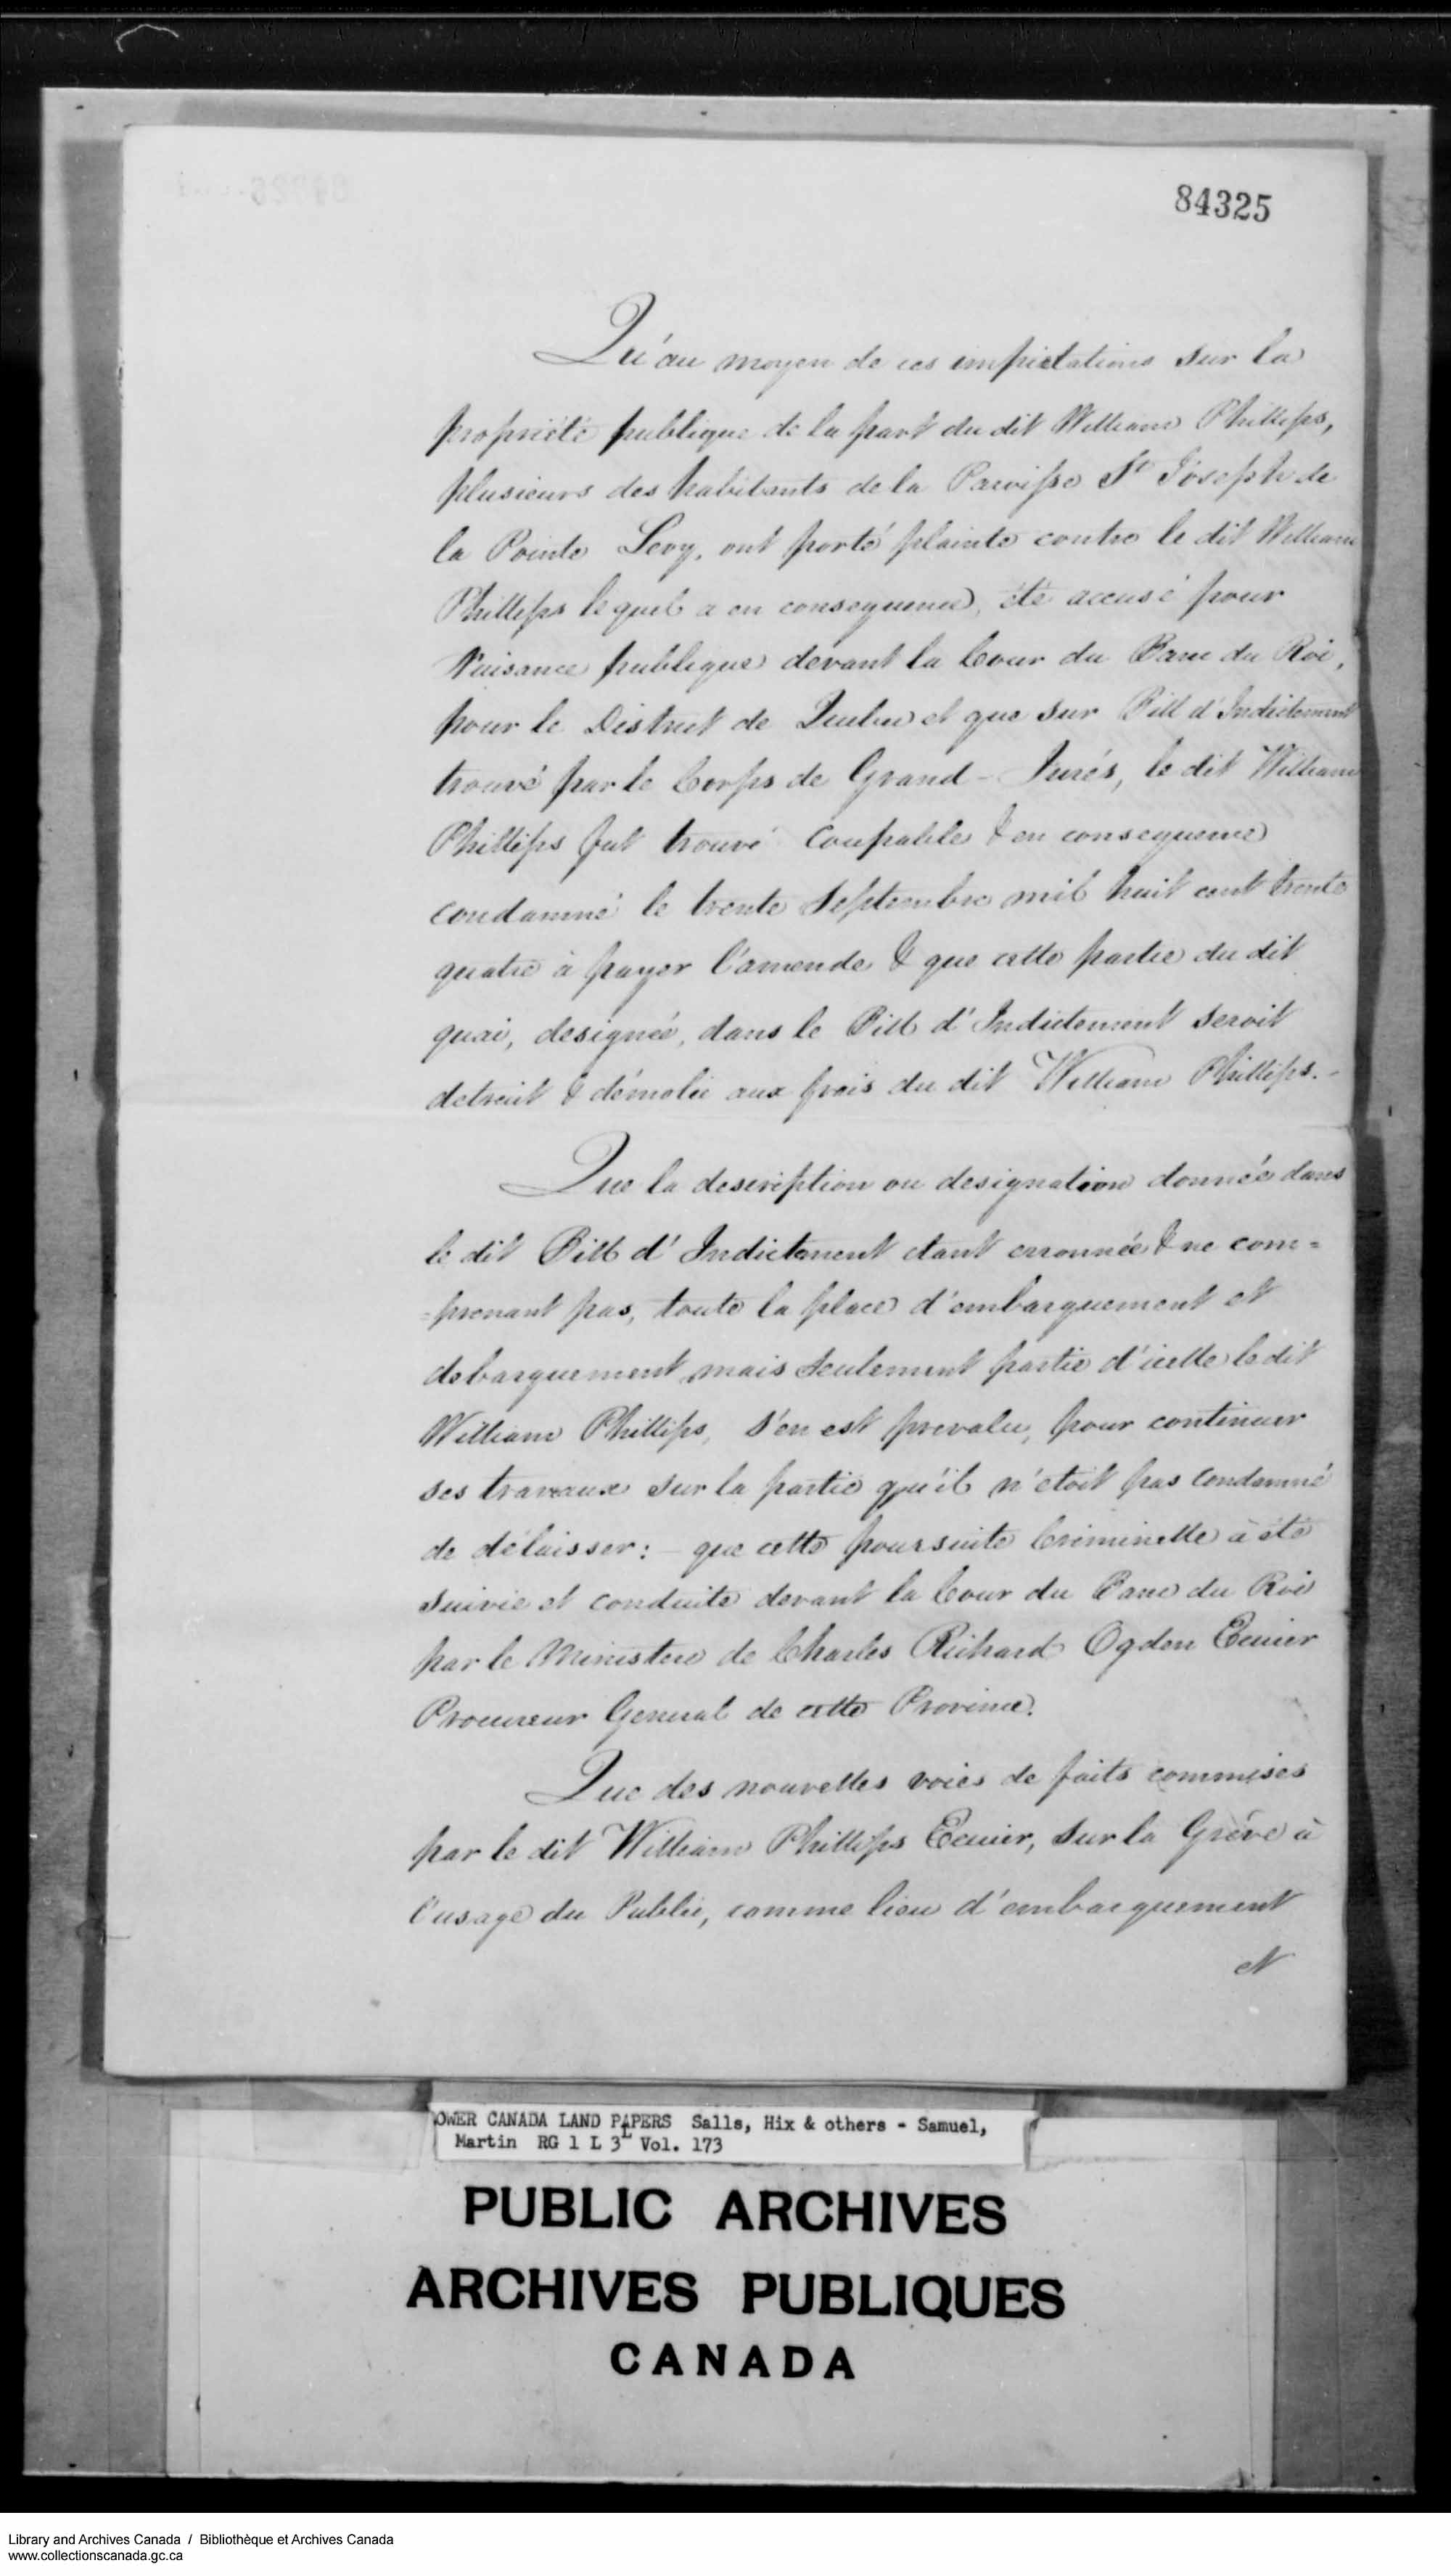 84325
Qu'au moyen de ces impietations sur la
propriété publique de la part du dit William Phillips,
plusieurs des habitants de la Paroisse St Joseph de
la Pointe Levy, ont porté plainte contre le dit William
Phillips lequel a en consequence, été accusé pour
Nuisance publique devant la Cour du Banc du Roi,
pour le District de Quebec et que sur Bill d'Indictement
trouvé par le Corps de Grand-Jurés, le dit William
Phillips fut trouvé Coupable & en consequence
condamné le trente Septembre mil huit cent trente
quatre à payer l'amende & que cette partie du dit
quai, designée, dans le Bill d'Indictement seroit
detruit & démolie aux frais du dit William Phillips.-
Que la description ou designation donnée dans
le dit Bill d'Indictement etant erronnée & ne com=
=prenant pas, toute la place d'embarquement et
debarquement, mais seulement partie d'icelle le dit
William Phillips, s'en est prevalu, pour continuer
ses travaux sur la partie qu'il n'etoit pas condamné
de délaisser: - que cette poursuite Criminelle à été
suivie et conduite devant la Cour du Banc du Roi
par le Ministere de Charles Richard Ogden Ecuier
Procureur General de cette Province.
Que des nouvelles voies de faits commises
par le dit William Phillips Ecuier, sur la Grève à
l'usage du Public, comme lieu d'embarquement
et
OWER CANADA LAND PAPERS Salls, Hix & others - Samuel,
Martin RG 1 L 3L Vol. 173
PUBLIC ARCHIVES
ARCHIVES PUBLIQUES
CANADA
Library and Archives Canada / Bibliothèque et Archives Canada
www.collectionscanada.gc.ca